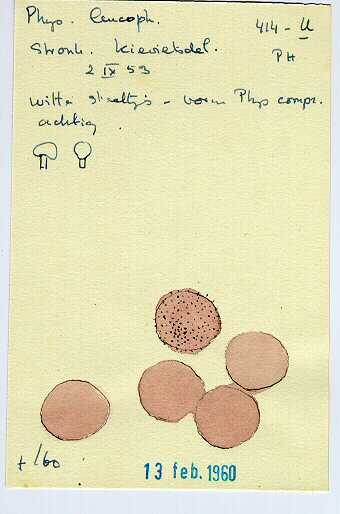 Phys. leucoph.
414 - U
Stronk. Kievietsdel.
PH
2 IX 53
witte steeltjes - vorm Phys compr.
achtig.
+/60
13 feb. 1960